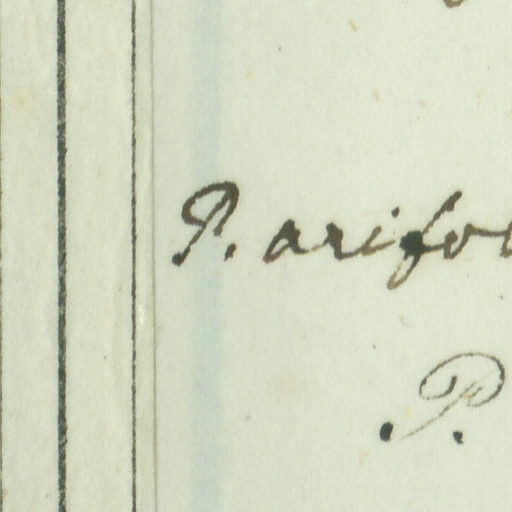 P. arifo
P.